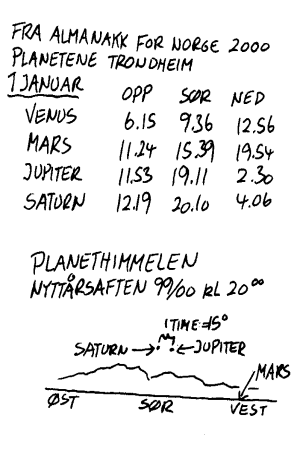 FRA ALMANAKK FOR NORGE 2000
PLANETENE TRONDHEIM
1 JANUAR
OPP SØR NED
VENUS 6.15 9.36 12.56
MARS 11.24 15.39 19.54
JUPITER 11.53 19.11 2.30
SATURN 12.19 20.10 4.06
PLANETHIMMELEN
NYTTÅRSAFTEN 99/00 KL 20⁰⁰
1 TIME=15°
SATURN → ← JUPITER
MARS
ØST SØR VEST